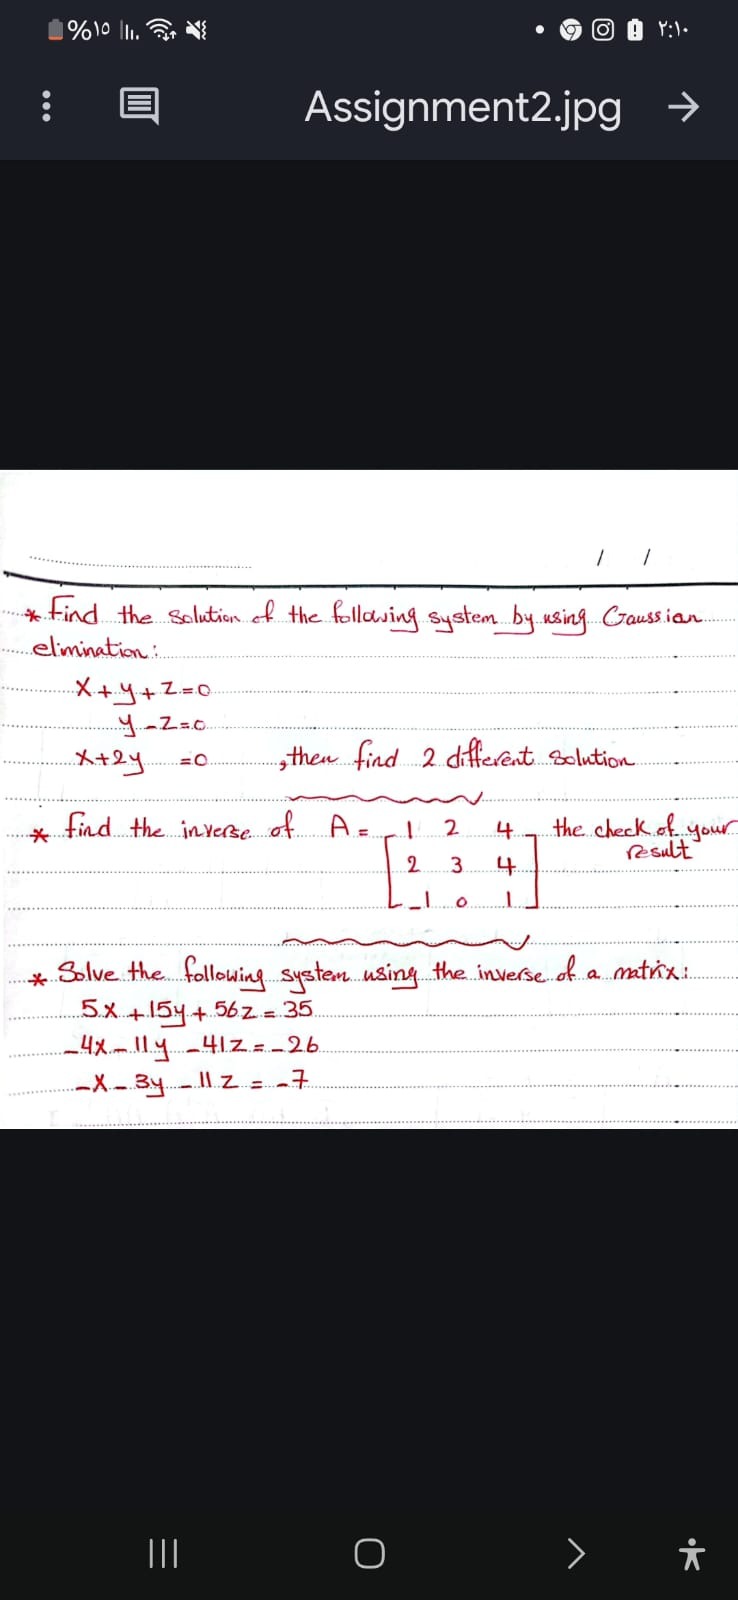 %١٥ ٢:١٠
Assignment2.jpg
/ /
* Find the solution of the following system by using Gaussian
elimination:
x+y+z=0
y-z=0
x+2y =0 ,then find 2 different solution
* find the inverse of A = [ 1 2 4 ] the check of your
result
2 3 4
-1 0 1
* Solve the following system using the inverse of a matrix:
5x+15y+56z=35
-4x-11y-41z=-26
-x-3y-11z=-7